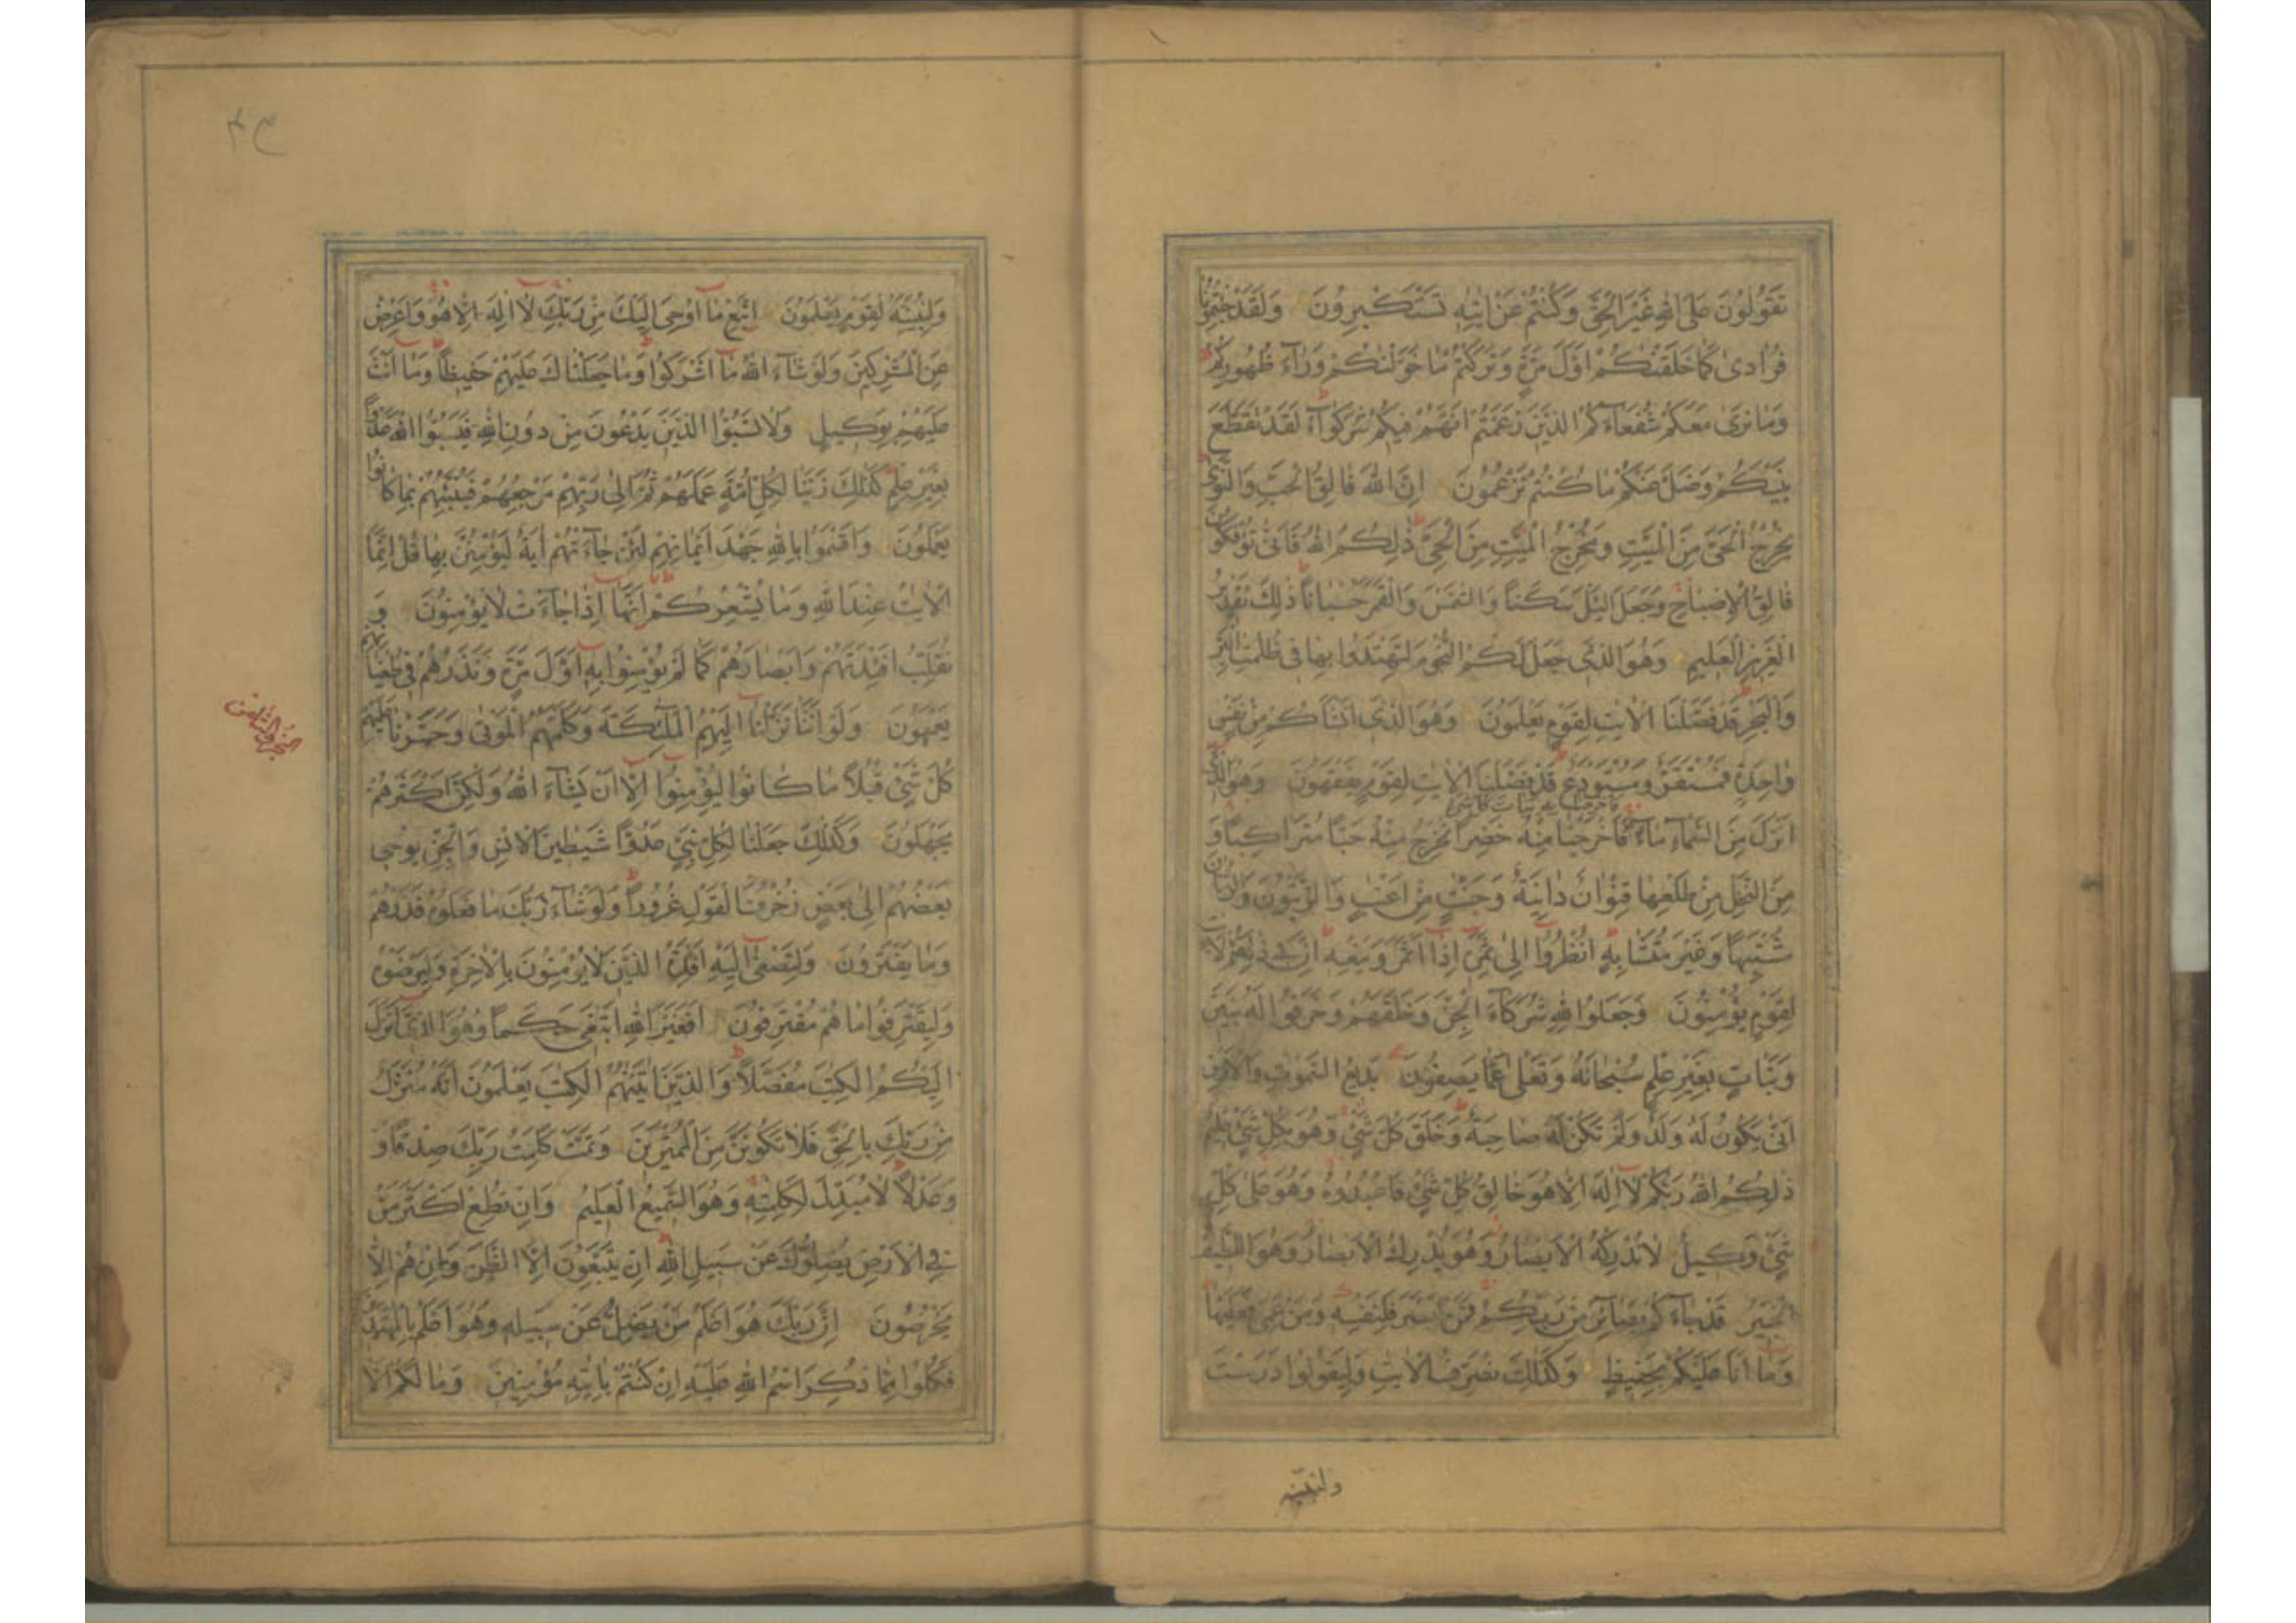 تَقُولُونَ عَلَى اللهِ غَيْرَ الْحَقِّ وَكُنْتُمْ عَنْ اٰيٰتِهٖ تَسْتَكْبِرُونَ وَلَقَدْ جِئْتُمُونَا
فُرَادٰى كَمَا خَلَقْنٰكُمْ اَوَّلَ مَرَّةٍ وَتَرَكْتُمْ مَا خَوَّلْنٰكُمْ وَرَآءَ ظُهُورِكُمْ
وَمَا نَرٰى مَعَكُمْ شُفَعَآءَكُمُ الَّذِينَ زَعَمْتُمْ اَنَّهُمْ فِيكُمْ شُرَكٰٓؤُا لَقَدْ تَقَطَّعَ
بَيْنَكُمْ وَضَلَّ عَنْكُمْ مَا كُنْتُمْ تَزْعُمُونَ اِنَّ اللهَ فَالِقُ الْحَبِّ وَالنَّوٰى
يُخْرِجُ الْحَىَّ مِنَ الْمَيِّتِ وَمُخْرِجُ الْمَيِّتِ مِنَ الْحَىِّ ذٰلِكُمُ اللهُ فَاَنّٰى تُؤْفَكُونَ
فَالِقُ الْاِصْبَاحِ وَجَعَلَ الَّيْلَ سَكَنًا وَالشَّمْسَ وَالْقَمَرَ حُسْبَانًا ذٰلِكَ تَقْدِيرُ
الْعَزِيزِ الْعَلِيمِ وَهُوَ الَّذِى جَعَلَ لَكُمُ النُّجُومَ لِتَهْتَدُوا بِهَا فِى ظُلُمٰتِ الْبَرِّ
وَالْبَحْرِ قَدْ فَصَّلْنَا الْاٰيٰتِ لِقَوْمٍ يَعْلَمُونَ وَهُوَ الَّذِى اَنْشَاَكُمْ مِنْ نَفْسٍ
وَاحِدَةٍ فَمُسْتَقَرٌّ وَمُسْتَوْدَعٌ قَدْ فَصَّلْنَا الْاٰيٰتِ لِقَوْمٍ يَفْقَهُونَ وَهُوَ الَّذِى
فَاَخْرَجْنَا بِهٖ نَبَاتَ كُلِّ شَىْءٍ
اَنْزَلَ مِنَ السَّمَآءِ مَآءً فَاَخْرَجْنَا مِنْهُ خَضِرًا نُخْرِجُ مِنْهُ حَبًّا مُتَرَاكِبًا وَ
مِنَ النَّخْلِ مِنْ طَلْعِهَا قِنْوَانٌ دَانِيَةٌ وَجَنّٰتٍ مِنْ اَعْنٰبٍ وَالزَّيْتُونَ وَالرُّمَّانَ
مُشْتَبِهًا وَغَيْرَ مُتَشَابِهٍ اُنْظُرُوا اِلٰى ثَمَرِهٖ اِذَا اَثْمَرَ وَيَنْعِهٖ اِنَّ فِى ذٰلِكُمْ لَاٰيٰتٍ
لِقَوْمٍ يُؤْمِنُونَ وَجَعَلُوا لِلّٰهِ شُرَكَآءَ الْجِنَّ وَخَلَقَهُمْ وَخَرَقُوا لَهُ بَنِينَ
وَبَنَاتٍ بِغَيْرِ عِلْمٍ سُبْحَانَهُ وَتَعٰلٰى عَمَّا يَصِفُونَ بَدِيعُ السَّمٰوٰتِ وَالْاَرْضِ
اَنّٰى يَكُونُ لَهُ وَلَدٌ وَلَمْ تَكُنْ لَهُ صَاحِبَةٌ وَخَلَقَ كُلَّ شَىْءٍ وَهُوَ بِكُلِّ شَىْءٍ عَلِيمٌ
ذٰلِكُمُ اللهُ رَبُّكُمْ لَا اِلٰهَ اِلَّا هُوَ خَالِقُ كُلِّ شَىْءٍ فَاعْبُدُوهُ وَهُوَ عَلٰى كُلِّ
شَىْءٍ وَكِيلٌ لَا تُدْرِكُهُ الْاَبْصَارُ وَهُوَ يُدْرِكُ الْاَبْصَارَ وَهُوَ اللَّطِيفُ
الْخَبِيرُ قَدْ جَآءَكُمْ بَصَآئِرُ مِنْ رَبِّكُمْ فَمَنْ اَبْصَرَ فَلِنَفْسِهٖ وَمَنْ عَمِىَ فَعَلَيْهَا
وَمَا اَنَا عَلَيْكُمْ بِحَفِيظٍ وَكَذٰلِكَ نُصَرِّفُ الْاٰيٰتِ وَلِيَقُولُوا دَرَسْتَ
ولنبينه
٤٣
وَلِنُبَيِّنَهُ لِقَوْمٍ يَعْلَمُونَ اِتَّبِعْ مَا اُوحِىَ اِلَيْكَ مِنْ رَبِّكَ لَا اِلٰهَ اِلَّا هُوَ وَاَعْرِضْ
عَنِ الْمُشْرِكِينَ وَلَوْ شَآءَ اللهُ مَا اَشْرَكُوا وَمَا جَعَلْنَاكَ عَلَيْهِمْ حَفِيظًا وَمَا اَنْتَ
عَلَيْهِمْ بِوَكِيلٍ وَلَا تَسُبُّوا الَّذِينَ يَدْعُونَ مِنْ دُونِ اللهِ فَيَسُبُّوا اللهَ عَدْوًا
بِغَيْرِ عِلْمٍ كَذٰلِكَ زَيَّنَّا لِكُلِّ اُمَّةٍ عَمَلَهُمْ ثُمَّ اِلٰى رَبِّهِمْ مَرْجِعُهُمْ فَيُنَبِّئُهُمْ بِمَا كَانُوا
يَعْمَلُونَ وَاَقْسَمُوا بِاللهِ جَهْدَ اَيْمَانِهِمْ لَئِنْ جَآءَتْهُمْ اٰيَةٌ لَيُؤْمِنُنَّ بِهَا قُلْ اِنَّمَا
الْاٰيٰتُ عِنْدَ اللهِ وَمَا يُشْعِرُكُمْ اَنَّهَا اِذَا جَآءَتْ لَا يُؤْمِنُونَ وَ
نُقَلِّبُ اَفْئِدَتَهُمْ وَاَبْصَارَهُمْ كَمَا لَمْ يُؤْمِنُوا بِهٖ اَوَّلَ مَرَّةٍ وَنَذَرُهُمْ فِى طُغْيَانِهِمْ
يَعْمَهُونَ وَلَوْ اَنَّنَا نَزَّلْنَا اِلَيْهِمُ الْمَلٰٓئِكَةَ وَكَلَّمَهُمُ الْمَوْتٰى وَحَشَرْنَا عَلَيْهِمْ
الجزو الثامن
كُلَّ شَىْءٍ قُبُلًا مَا كَانُوا لِيُؤْمِنُوا اِلَّا اَنْ يَشَآءَ اللهُ وَلٰكِنَّ اَكْثَرَهُمْ
يَجْهَلُونَ وَكَذٰلِكَ جَعَلْنَا لِكُلِّ نَبِىٍّ عَدُوًّا شَيٰطِينَ الْاِنْسِ وَالْجِنِّ يُوحِى
بَعْضُهُمْ اِلٰى بَعْضٍ زُخْرُفَ الْقَوْلِ غُرُورًا وَلَوْ شَآءَ رَبُّكَ مَا فَعَلُوهُ فَذَرْهُمْ
وَمَا يَفْتَرُونَ وَلِتَصْغٰى اِلَيْهِ اَفْئِدَةُ الَّذِينَ لَا يُؤْمِنُونَ بِالْاٰخِرَةِ وَلِيَرْضَوْهُ
وَلِيَقْتَرِفُوا مَا هُمْ مُقْتَرِفُونَ اَفَغَيْرَ اللهِ اَبْتَغِى حَكَمًا وَهُوَ الَّذِى اَنْزَلَ
اِلَيْكُمُ الْكِتٰبَ مُفَصَّلًا وَالَّذِينَ اٰتَيْنٰهُمُ الْكِتٰبَ يَعْلَمُونَ اَنَّهُ مُنَزَّلٌ
مِنْ رَبِّكَ بِالْحَقِّ فَلَا تَكُونَنَّ مِنَ الْمُمْتَرِينَ وَتَمَّتْ كَلِمَتُ رَبِّكَ صِدْقًا وَ
وَعَدْلًا لَا مُبَدِّلَ لِكَلِمٰتِهٖ وَهُوَ السَّمِيعُ الْعَلِيمُ وَاِنْ تُطِعْ اَكْثَرَ مَنْ
فِى الْاَرْضِ يُضِلُّوكَ عَنْ سَبِيلِ اللهِ اِنْ يَتَّبِعُونَ اِلَّا الظَّنَّ وَاِنْ هُمْ اِلَّا
يَخْرُصُونَ اِنَّ رَبَّكَ هُوَ اَعْلَمُ مَنْ يَضِلُّ عَنْ سَبِيلِهٖ وَهُوَ اَعْلَمُ بِالْمُهْتَدِينَ
فَكُلُوا مِمَّا ذُكِرَ اسْمُ اللهِ عَلَيْهِ اِنْ كُنْتُمْ بِاٰيٰتِهٖ مُؤْمِنِينَ وَمَا لَكُمْ اَلَّا